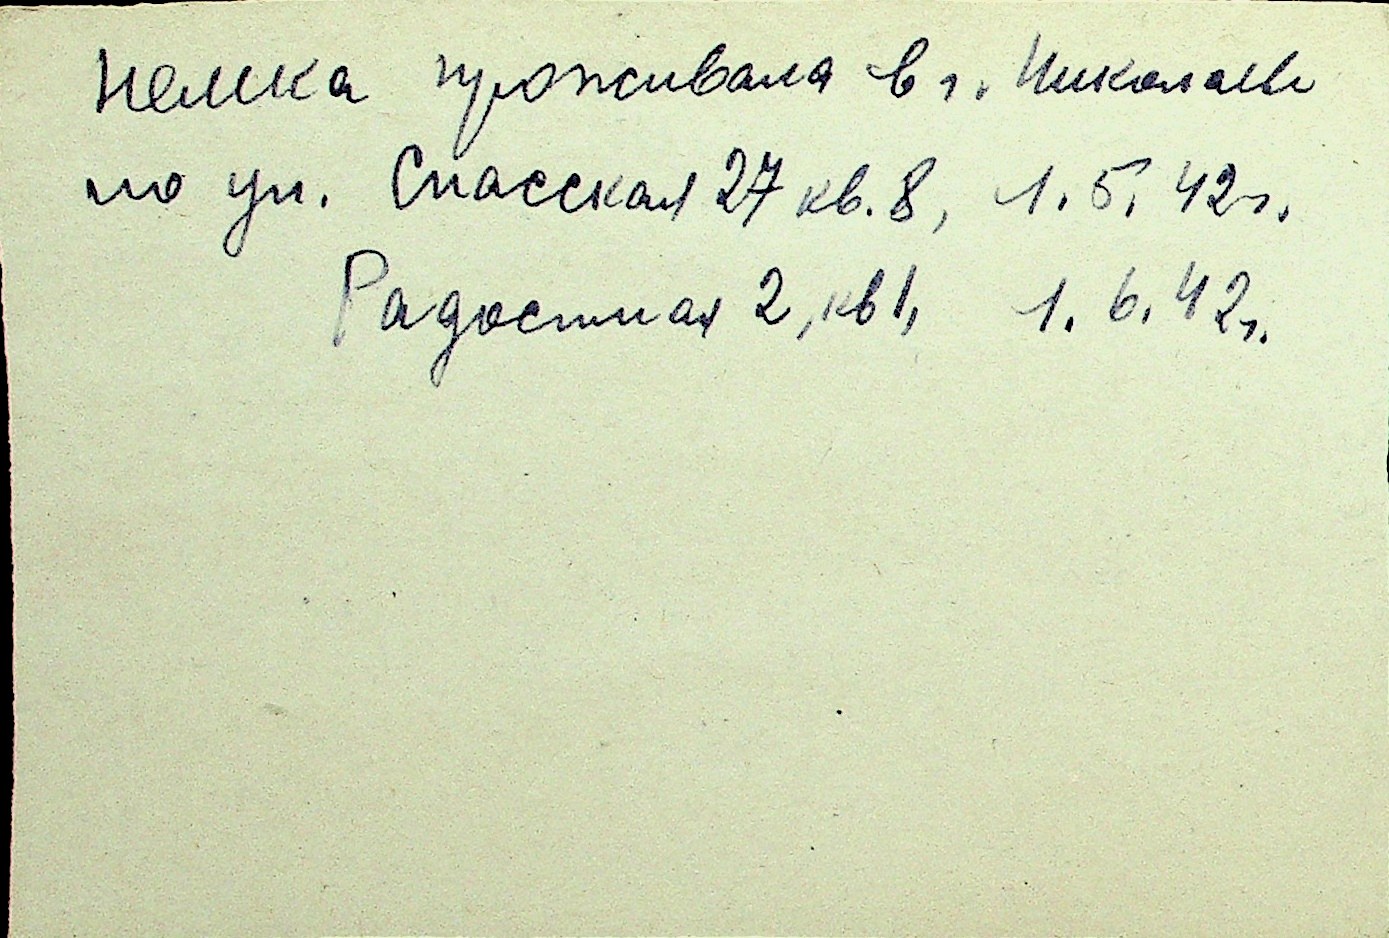 Немка проживала в г. Николаеве
по ул. Спасская 27 кв. 8, 1.5.42г.
Радостная 2, кв 1, 1.6.42г.